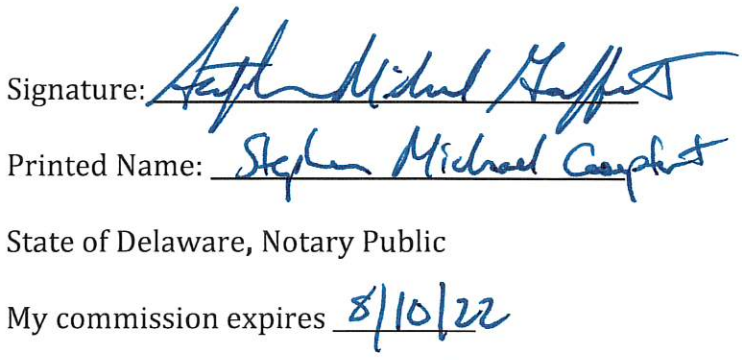 Signature: Stephen Michael
Printed Name: Stephen Michael
State of Delaware, Notary Public
My commission expires 8/10/22